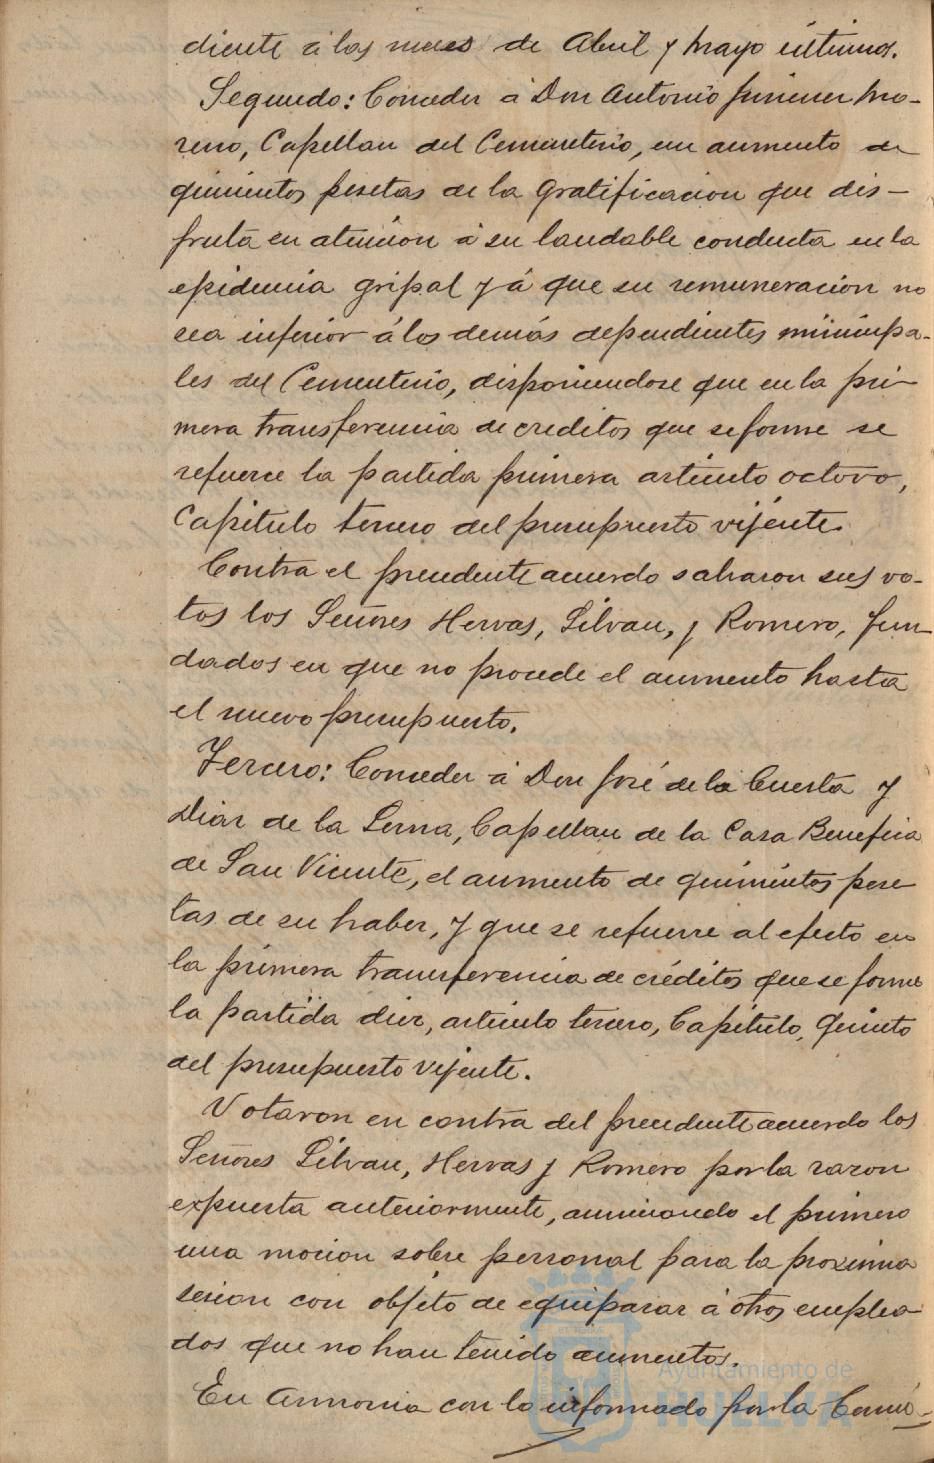 diente á los meses de Abril y Mayo últimos.
Segundo: Conceder á Don Antonio Jimenez Mo-
reno, Capellan del Cementerio, un aumento de
quinientas pesetas de la gratificacion que dis-
fruta en atencion á su laudable conducta en la
epidemia gripal y á que su remuneracion no
sea inferior á los demás dependientes municipa-
les del Cementerio, disponiendose que en la pri-
mera transferencia de creditos que se forme se
refuerce la partida primera articulo octavo,
Capitulo tercero del presupuesto vijente.
Contra el precedente acuerdo salvaron sus vo-
tos los Señores Hervas, Silvan, y Romero, fun-
dados en que no procede el aumento hasta
el nuevo presupuesto.
Tercero: Conceder á Don José de la Cuesta y
Diaz de la Serna, Capellan de la Casa Benefica
de San Vicente, el aumento de quinientas pese-
tas de su haber, y que se refuerce al efecto en
la primera transferencia de créditos que se forme
la partida diez, articulo tercero, Capitulo, Quinto
del presupuesto vijente.
Votaron en contra del precedente acuerdo los
Señores Silvan, Hervas y Romero por la razon
expuesta anteriormente, anunciando el primero
una mocion sobre personal para la proxima
sesion con objeto de equiparar á otros emplea-
dos que no han tenido aumentos.
En Armonia con lo informado por la Comi-
Ayuntamiento de
HUELVA